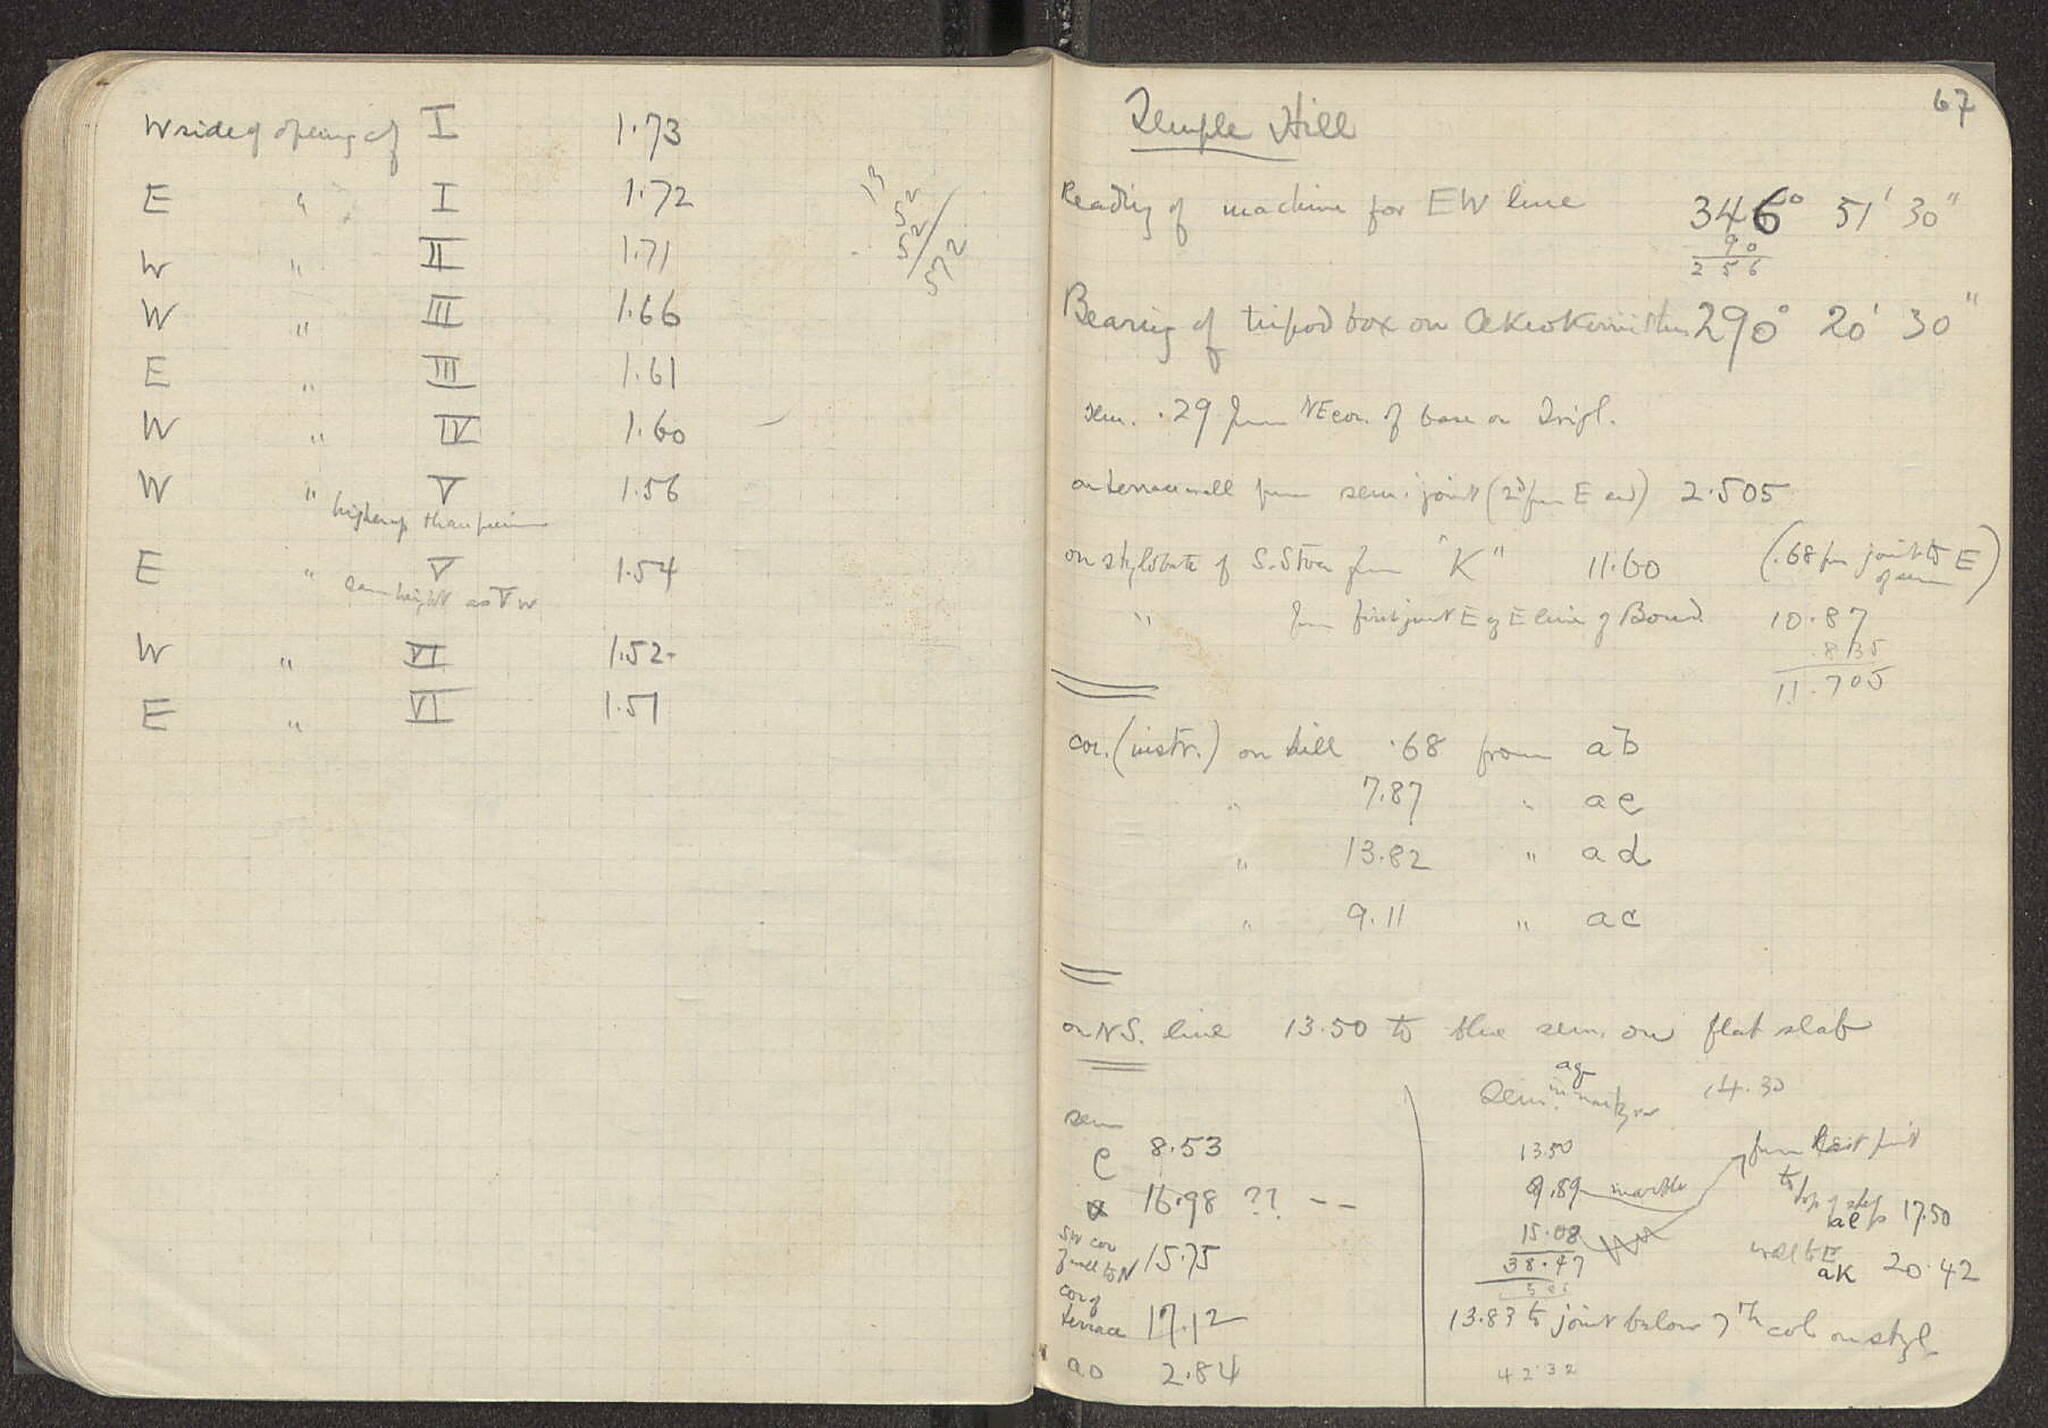 W side of opening of I 1.73
E " I 1.72
W " II 1.71
W " III 1.66
E " III 1.61
W " IV 1.60
W " V 1.56
higher up than
E " V 1.54
same height as V W
W " VI 1.52
E " VI 1.51
13
52
52
572
67
Temple Hill
Reading of machine for EW line 346° 51' 30"
90
256
Bearing of tripod box on 290° 20' 30"
sem. .29 from NE cor. of base on
on terrace wall from sem. joint (2d from E end) 2.505
on stylobate of S. Stoa from "K" 11.60 (.68 from joint to E
of sem)
" from first joint E of E line of 10.87
.835
11.705
cor. (instr.) on hill .68 from ab
" 7.87 " ae
" 13.82 " ad
" 9.11 " ac
on NS. line 13.50 to blue sem. on flat slab
sem
e 8.53
16.98 ?? --
SW cor
of wall to N 15.75
cor of
terrace 17.12
ao 2.84
ag
sem. in 14.30
13.50
9.89 marble
15.08
38.47
from joint
to top of step
ae 17.50
wall to E
ak 20.42
13.83 to joint below 7th col on styl.
42.32